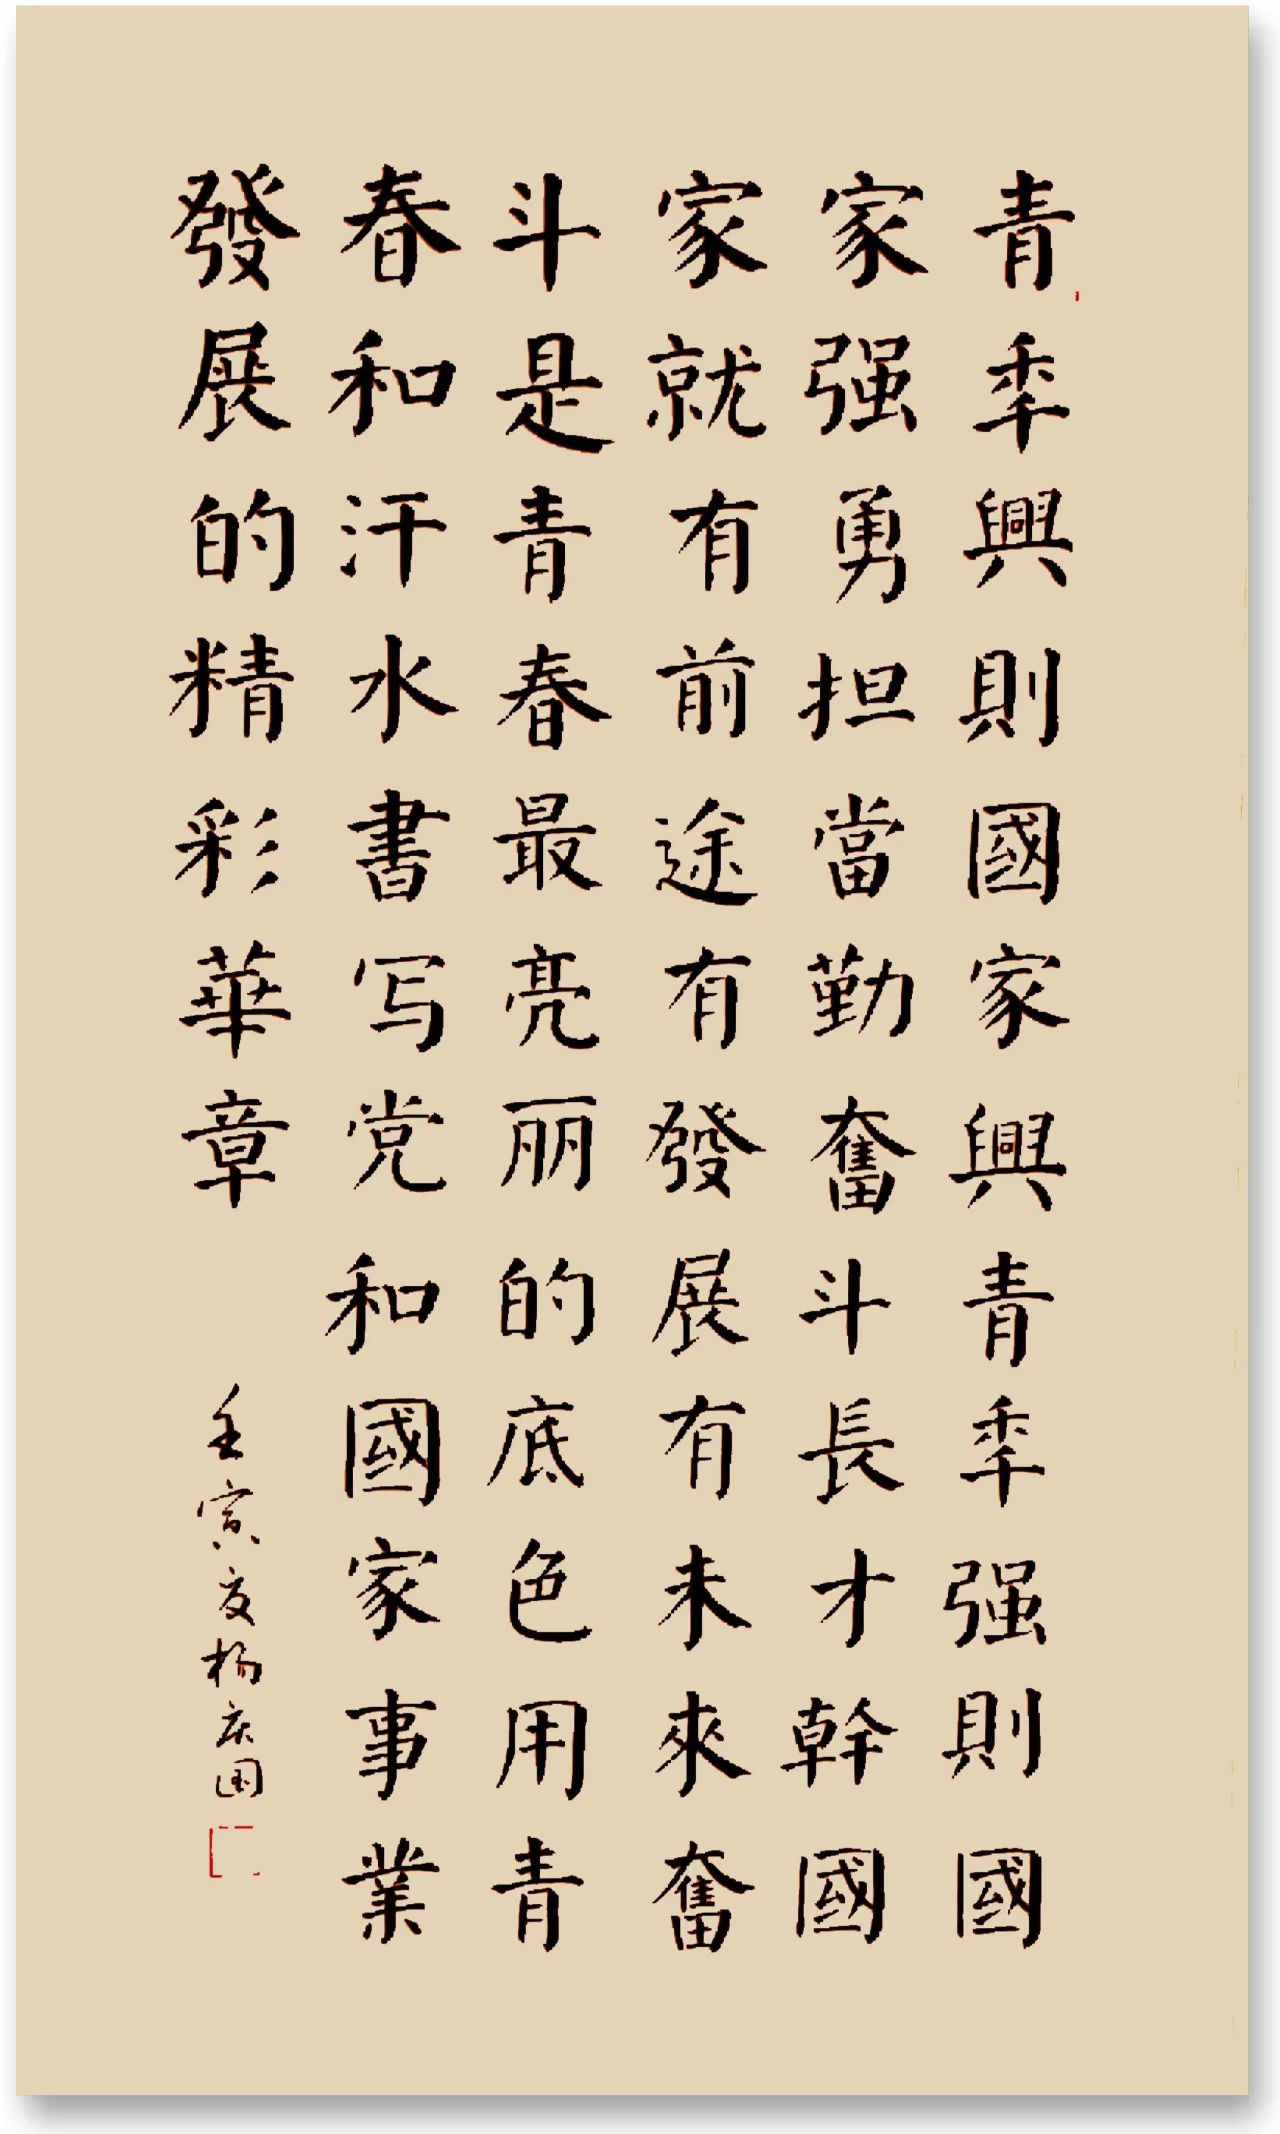 青秊興則國家興青秊强則國
家强勇担當勤奮斗長才幹國
家就有前途有發展有未來奮
斗是青春最亮丽的底色用青
春和汗水書写党和國家事業
發展的精彩華章
壬寅夏杨庆国